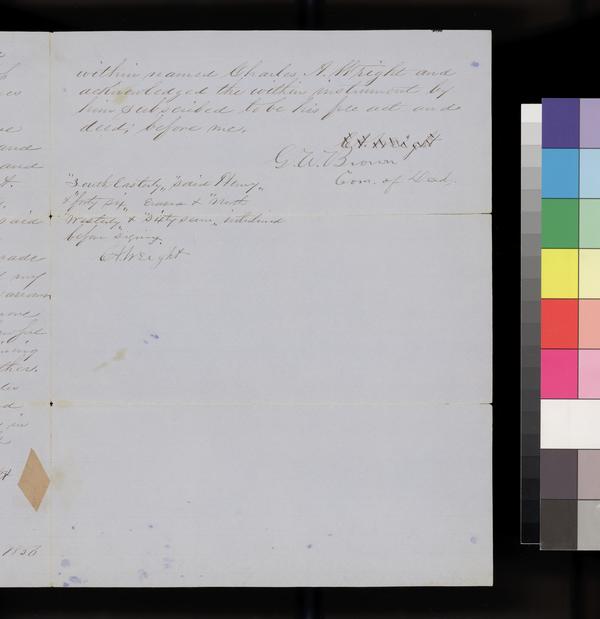 within named Charles A. Wright and
acknowledged the within instrument by
him subscribed to be his free act and
deed; before me.
G. W. Brown
Com. of Deed.
"South Easterly" "said Henry"
& "forty six" Erasure & "North
Westerly" & "Sixty seven" interlined
before signing.
C A Wright
and
and
said
made
my
1856